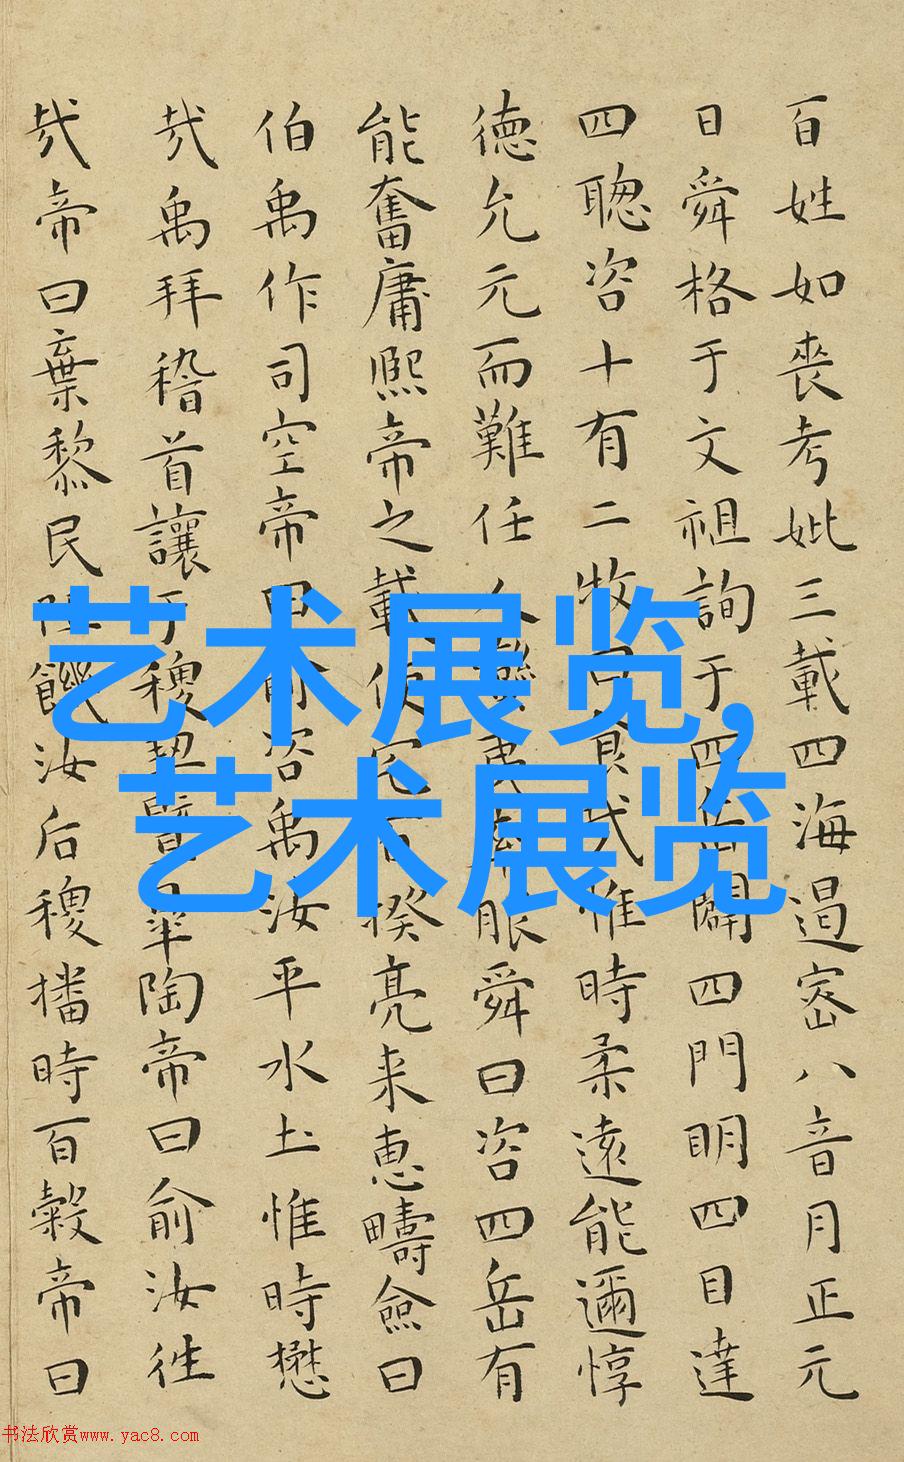 百姓如丧考妣三載四海遏密八音月正元
日舜格于文祖詢于四岳闢四門明四目達
四聰咨十有二牧曰食哉惟時柔遠能邇惇
德允元而難任人蠻夷率服舜曰咨四岳有
能奮庸熙帝之載使宅百揆亮来惠疇僉曰
伯禹作司空帝曰俞咨禹汝平水土惟時懋
哉禹拜稽首讓于稷契暨皐陶帝曰俞汝往
哉帝曰棄黎民阻饑汝后稷播時百穀帝曰
艺术展览,
艺术展览
书法欣赏www.yac8.com